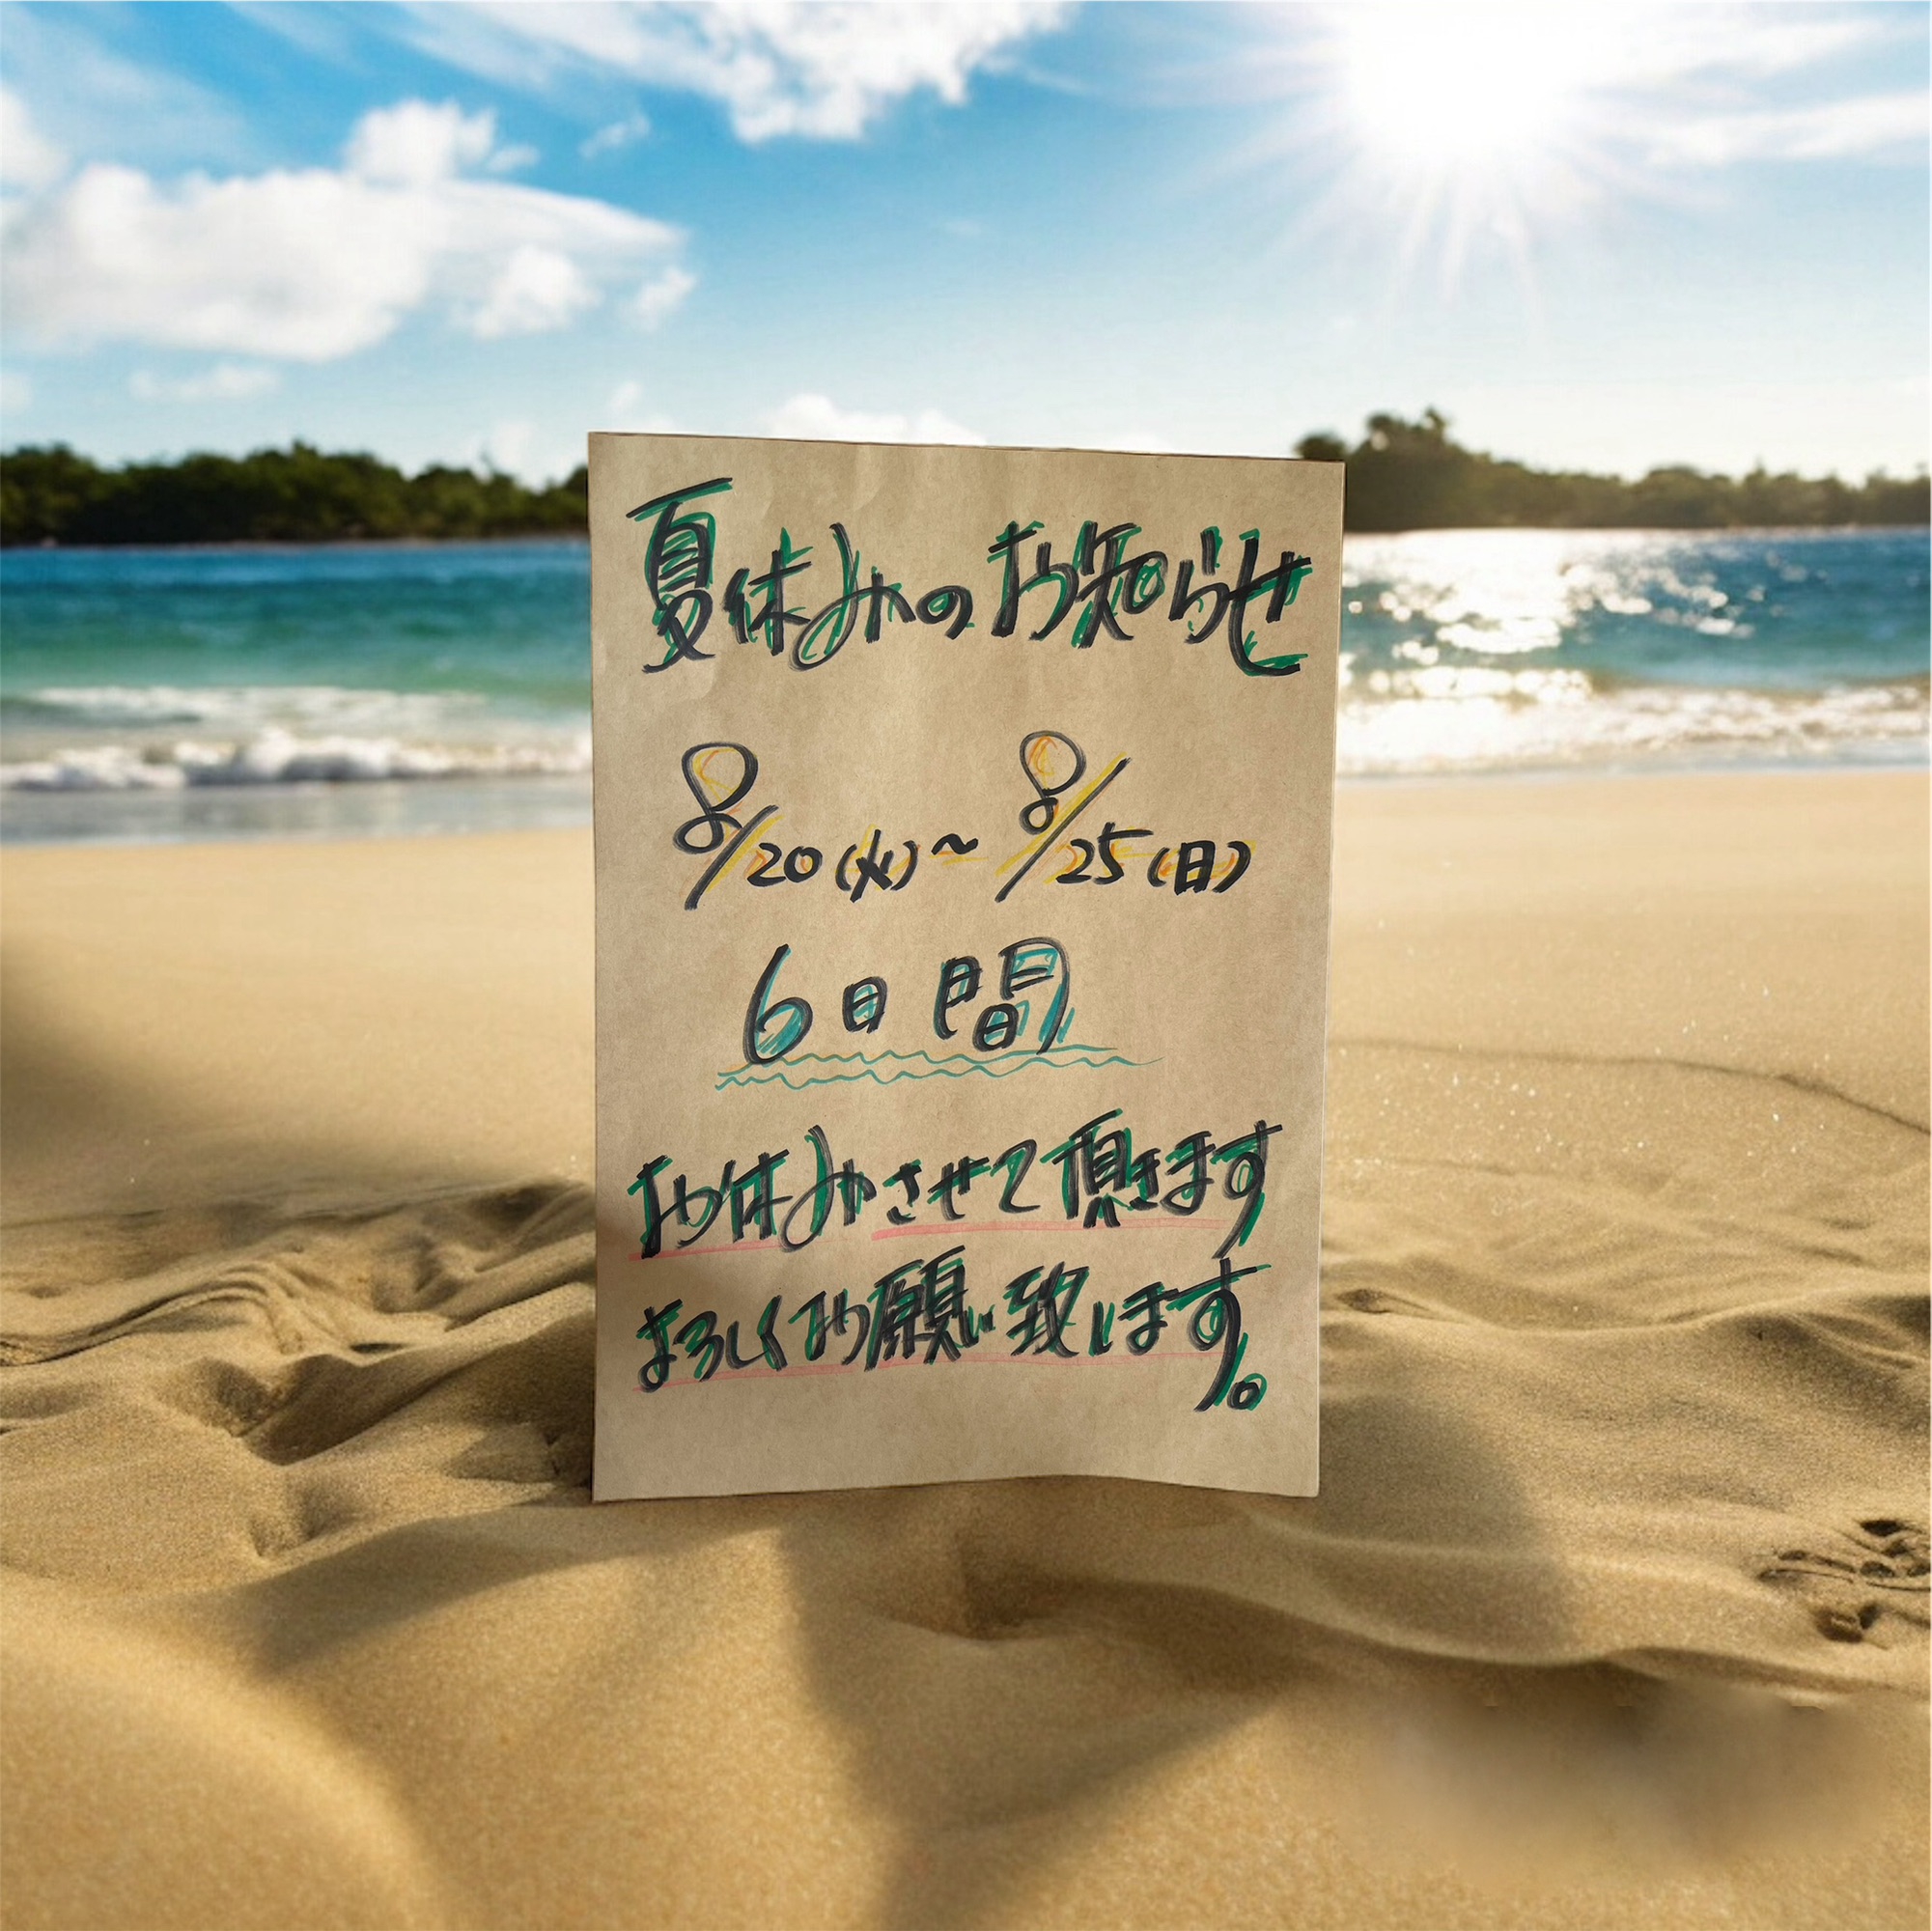 夏休みのお知らせ
8/20(火)~8/25(日)
6日間
お休みさせて頂きます
よろしくお願い致します。